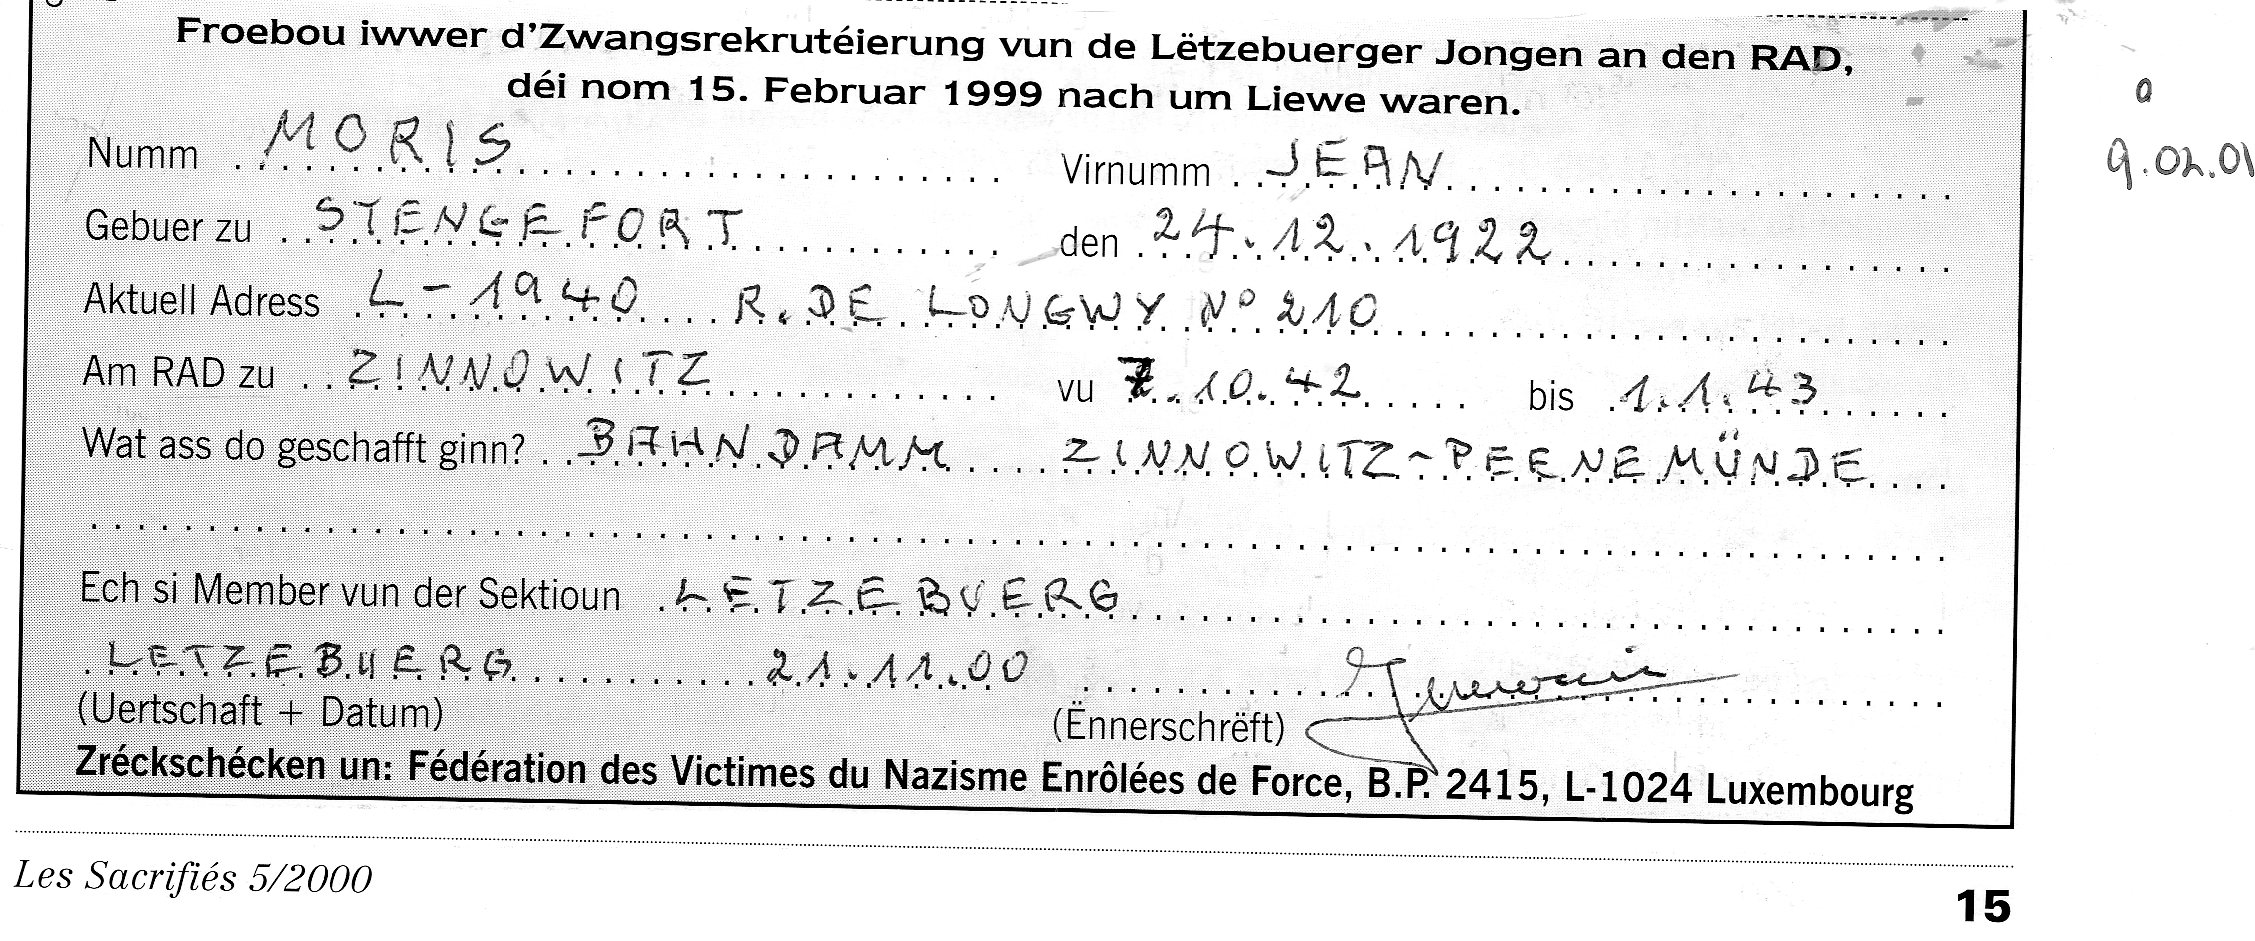 Froebou iwwer d'Zwangsrekrutéierung vun de Lëtzebuerger Jongen an den RAD,
déi nom 15. Februar 1999 nach um Liewe waren.
a
9.02.01
Numm MORIS Virnumm JEAN
Gebuer zu STENGEFORT den 24.12.1922
Aktuell Adress L-1940 R. DE LONGWY N° 210
Am RAD zu ZINNOWITZ vu 7.10.42 bis 1.1.43
Wat ass do geschafft ginn? BAHNDAMM ZINNOWITZ-PEENEMÜNDE
Ech si Member vun der Sektioun LETZEBUERG
LETZEBUERG 21.11.00
(Uertschaft + Datum) (Ënnerschrëft)
Zréckschécken un: Fédération des Victimes du Nazisme Enrôlées de Force, B.P. 2415, L-1024 Luxembourg
Les Sacrifiés 5/2000
15